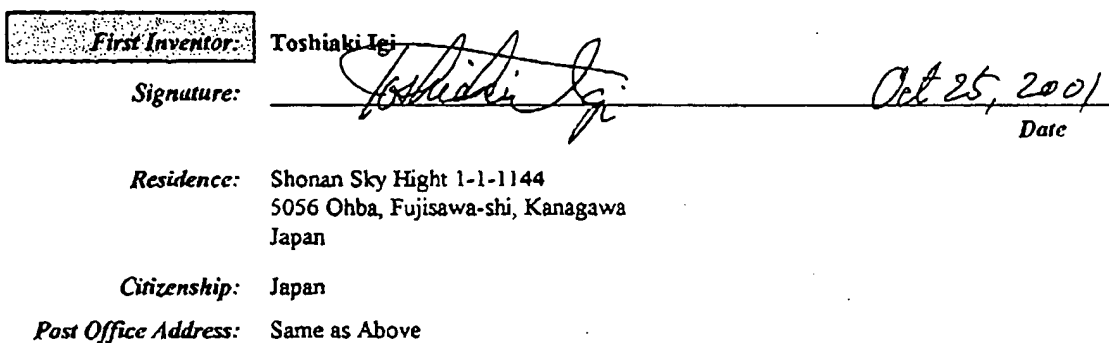 First Inventor: Toshiaki Igi
Signature: Toshiaki Igi Oct 25, 2001
Date
Residence: Shonan Sky Hight 1-1-1144
5056 Ohba, Fujisawa-shi, Kanagawa
Japan
Citizenship: Japan
Post Office Address: Same as Above